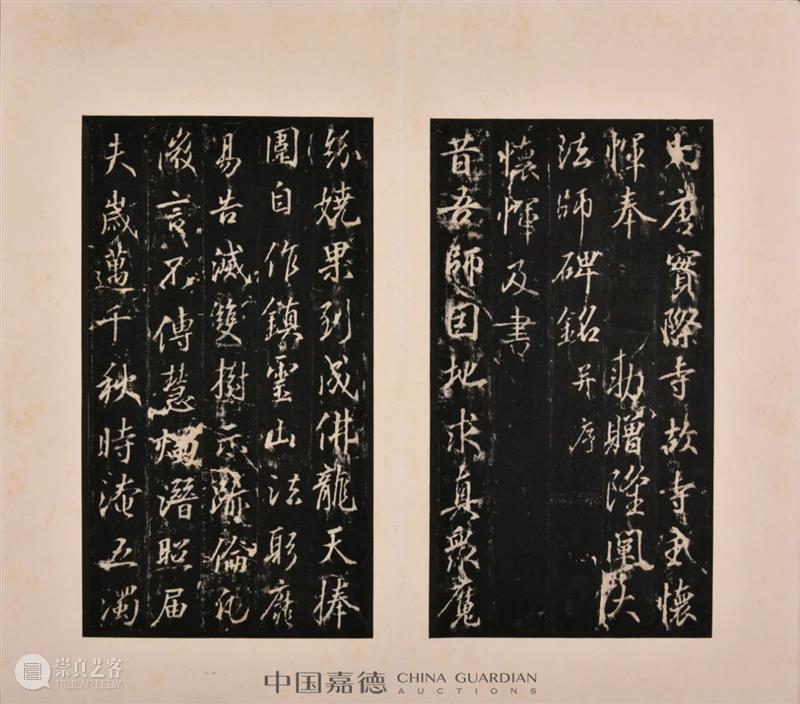 大唐實際寺故寺主懷
惲奉　勑贈隆闡大
法師碑銘并序
懷惲及書
昔吾師因地求真眾魔
紛嬈果到成佛龍天捧
圍自作鎮靈山法躬靡
易告滅雙樹示跡倫凡
微言不傳慧燭潛照届
夫歲邁千秋時淹五濁
崇真艺客
WWW.TRUEART.COM
中国嘉德 CHINA GUARDIAN
AUCTIONS